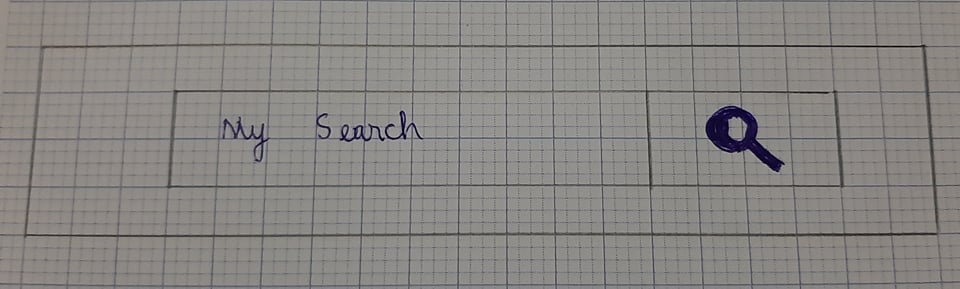 My Search